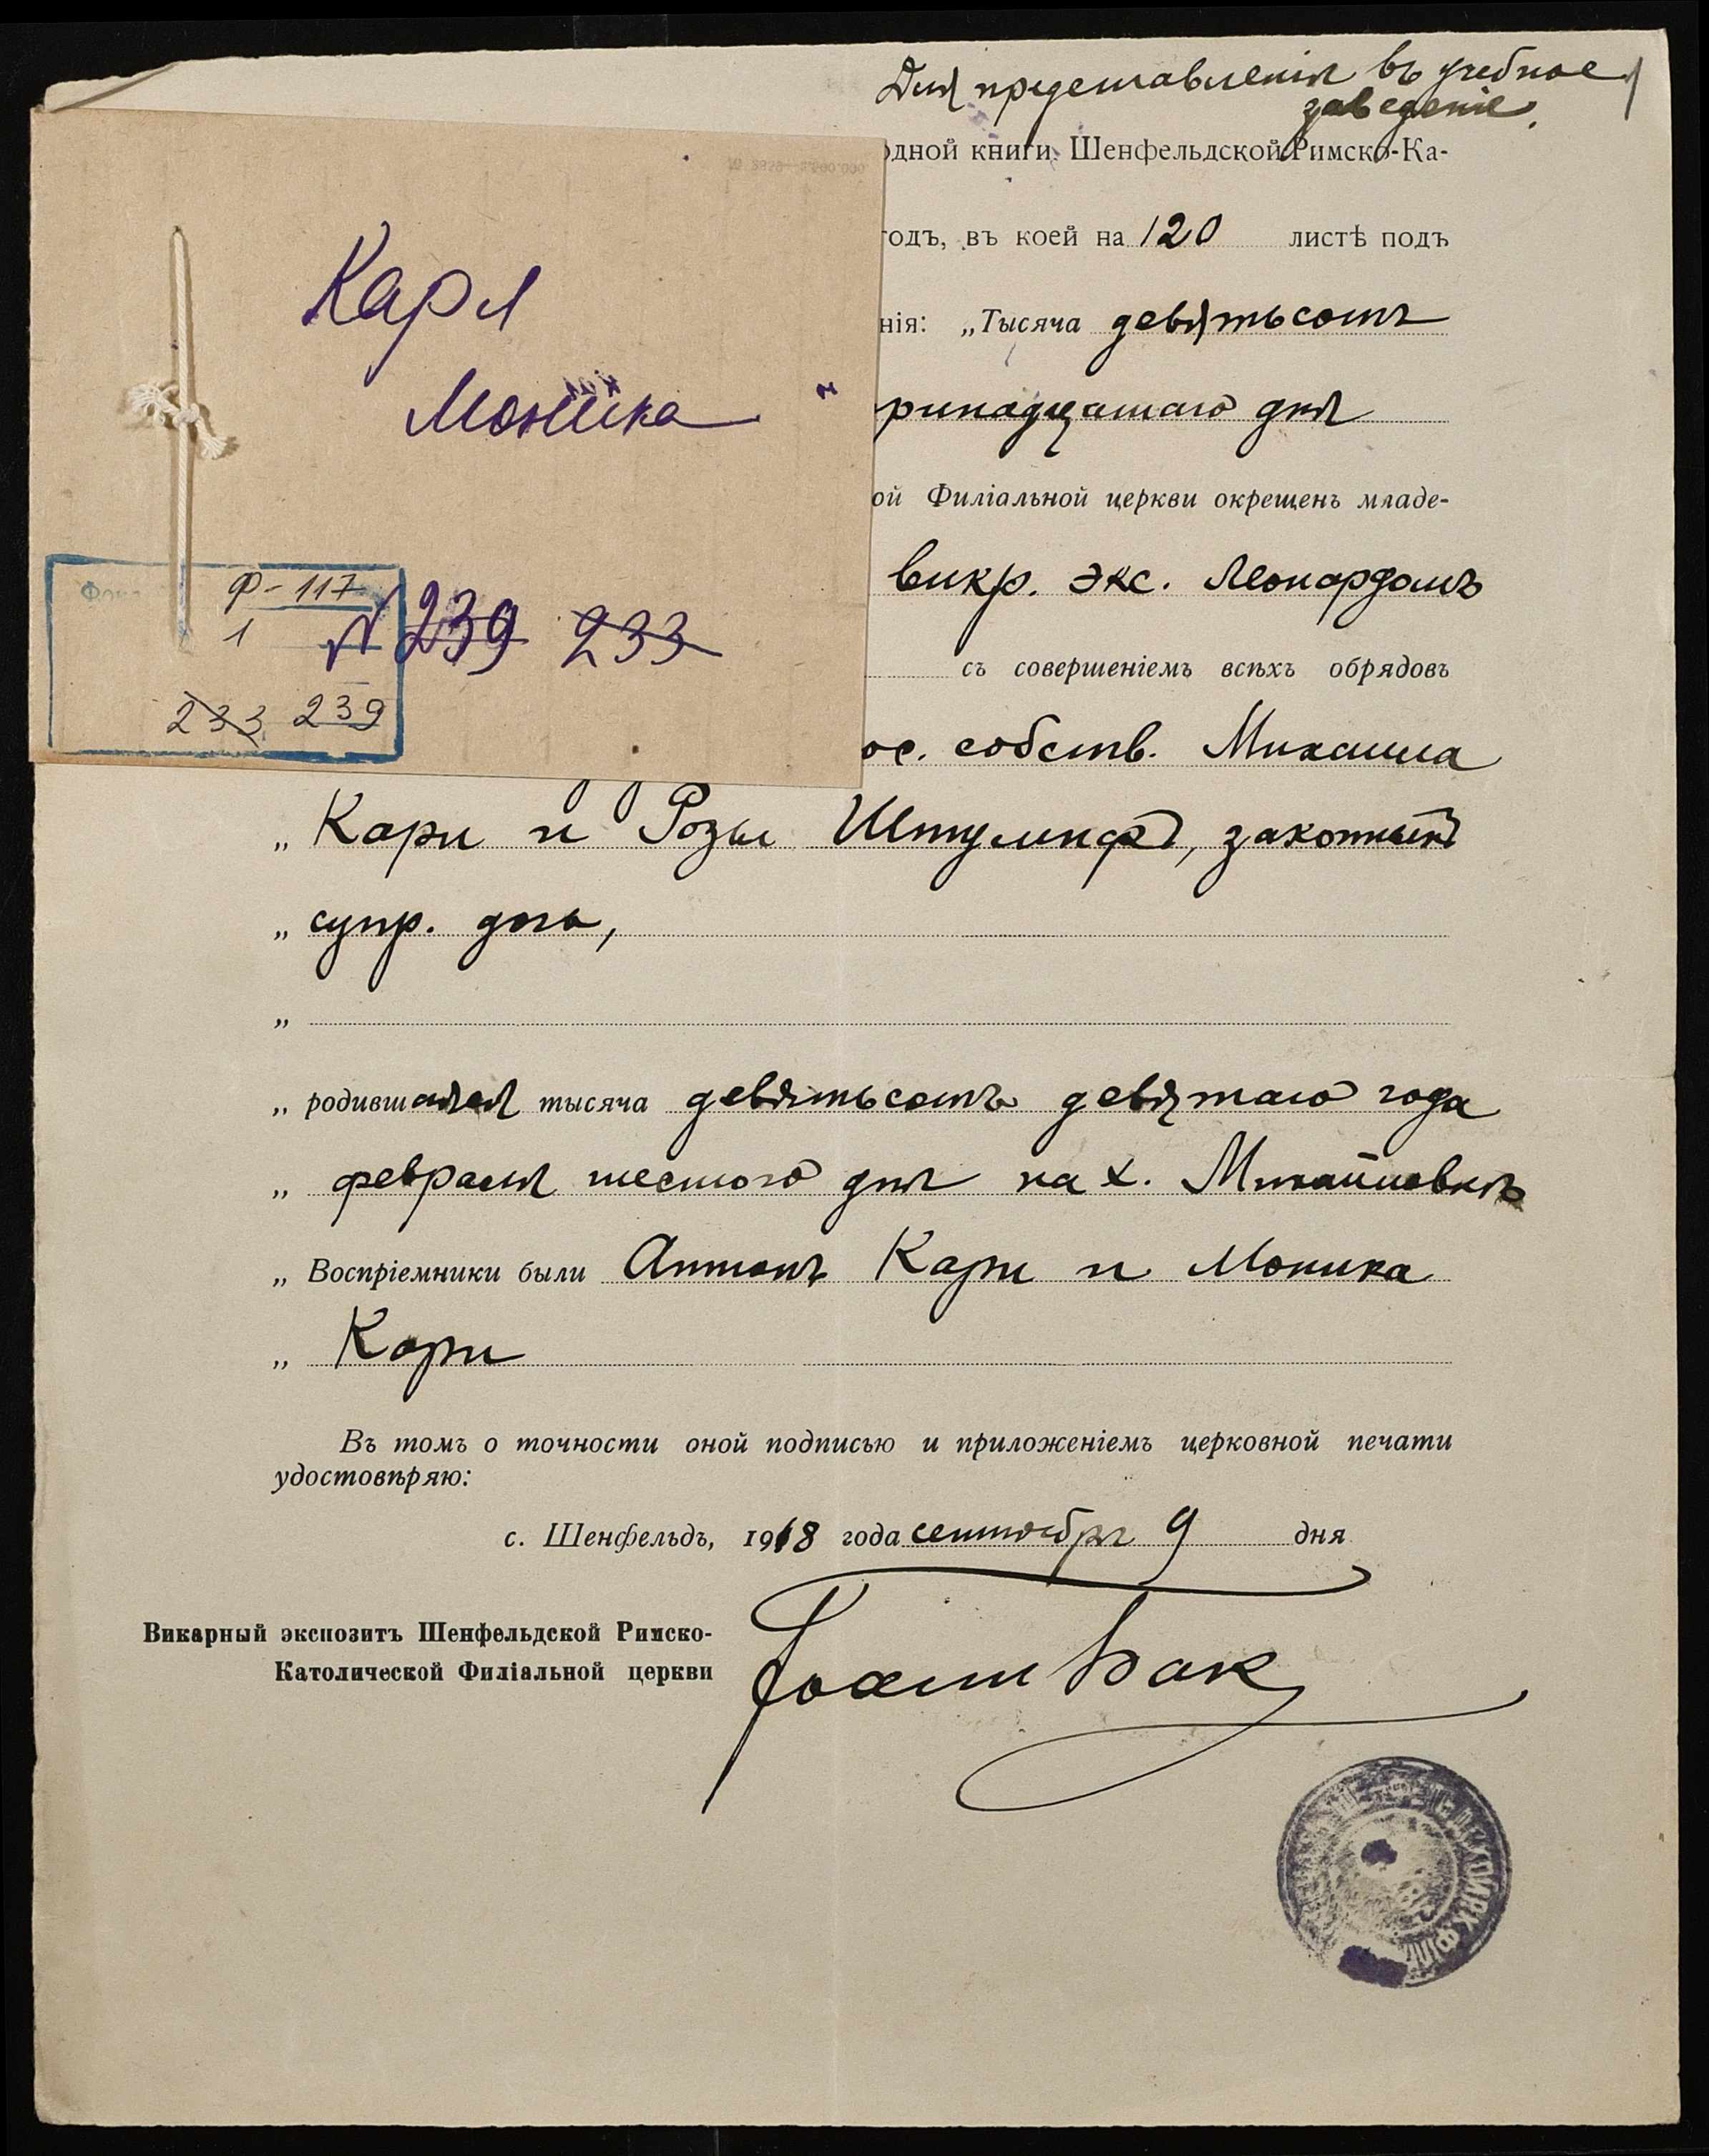 Для представленія въ учебное
заведеніе.
одной книги Шенфельдской Римско-Ка-
годъ, въ коей на 120 листѣ подъ
нія: „Тысяча девятьсотъ
ринадцатаго дня
ой Филіальной церкви окрещенъ младе-
викр. экс. Леонардомъ
съ совершеніемъ всѣхъ обрядовъ
ос. собств. Михаила
„ Карл и Розы Штумпфъ, законныхъ
„ супр. дочь,
„
„ родившаяся тысяча девятьсотъ девятаго года
„ февраля шестого дня на х. Михайловкѣ
„ Воспріемники были Антонъ Карл и Моника
„ Карл
Въ томъ о точности оной подписью и приложеніемъ церковной печати
удостовѣряю:
с. Шенфельдъ, 1918 года сентября 9 дня
Викарный экспозитъ Шенфельдской Римско-
Католической Филіальной церкви
Іоаннъ Бак
Карл
Моника
Ф-117
1 N 239 233
233 239